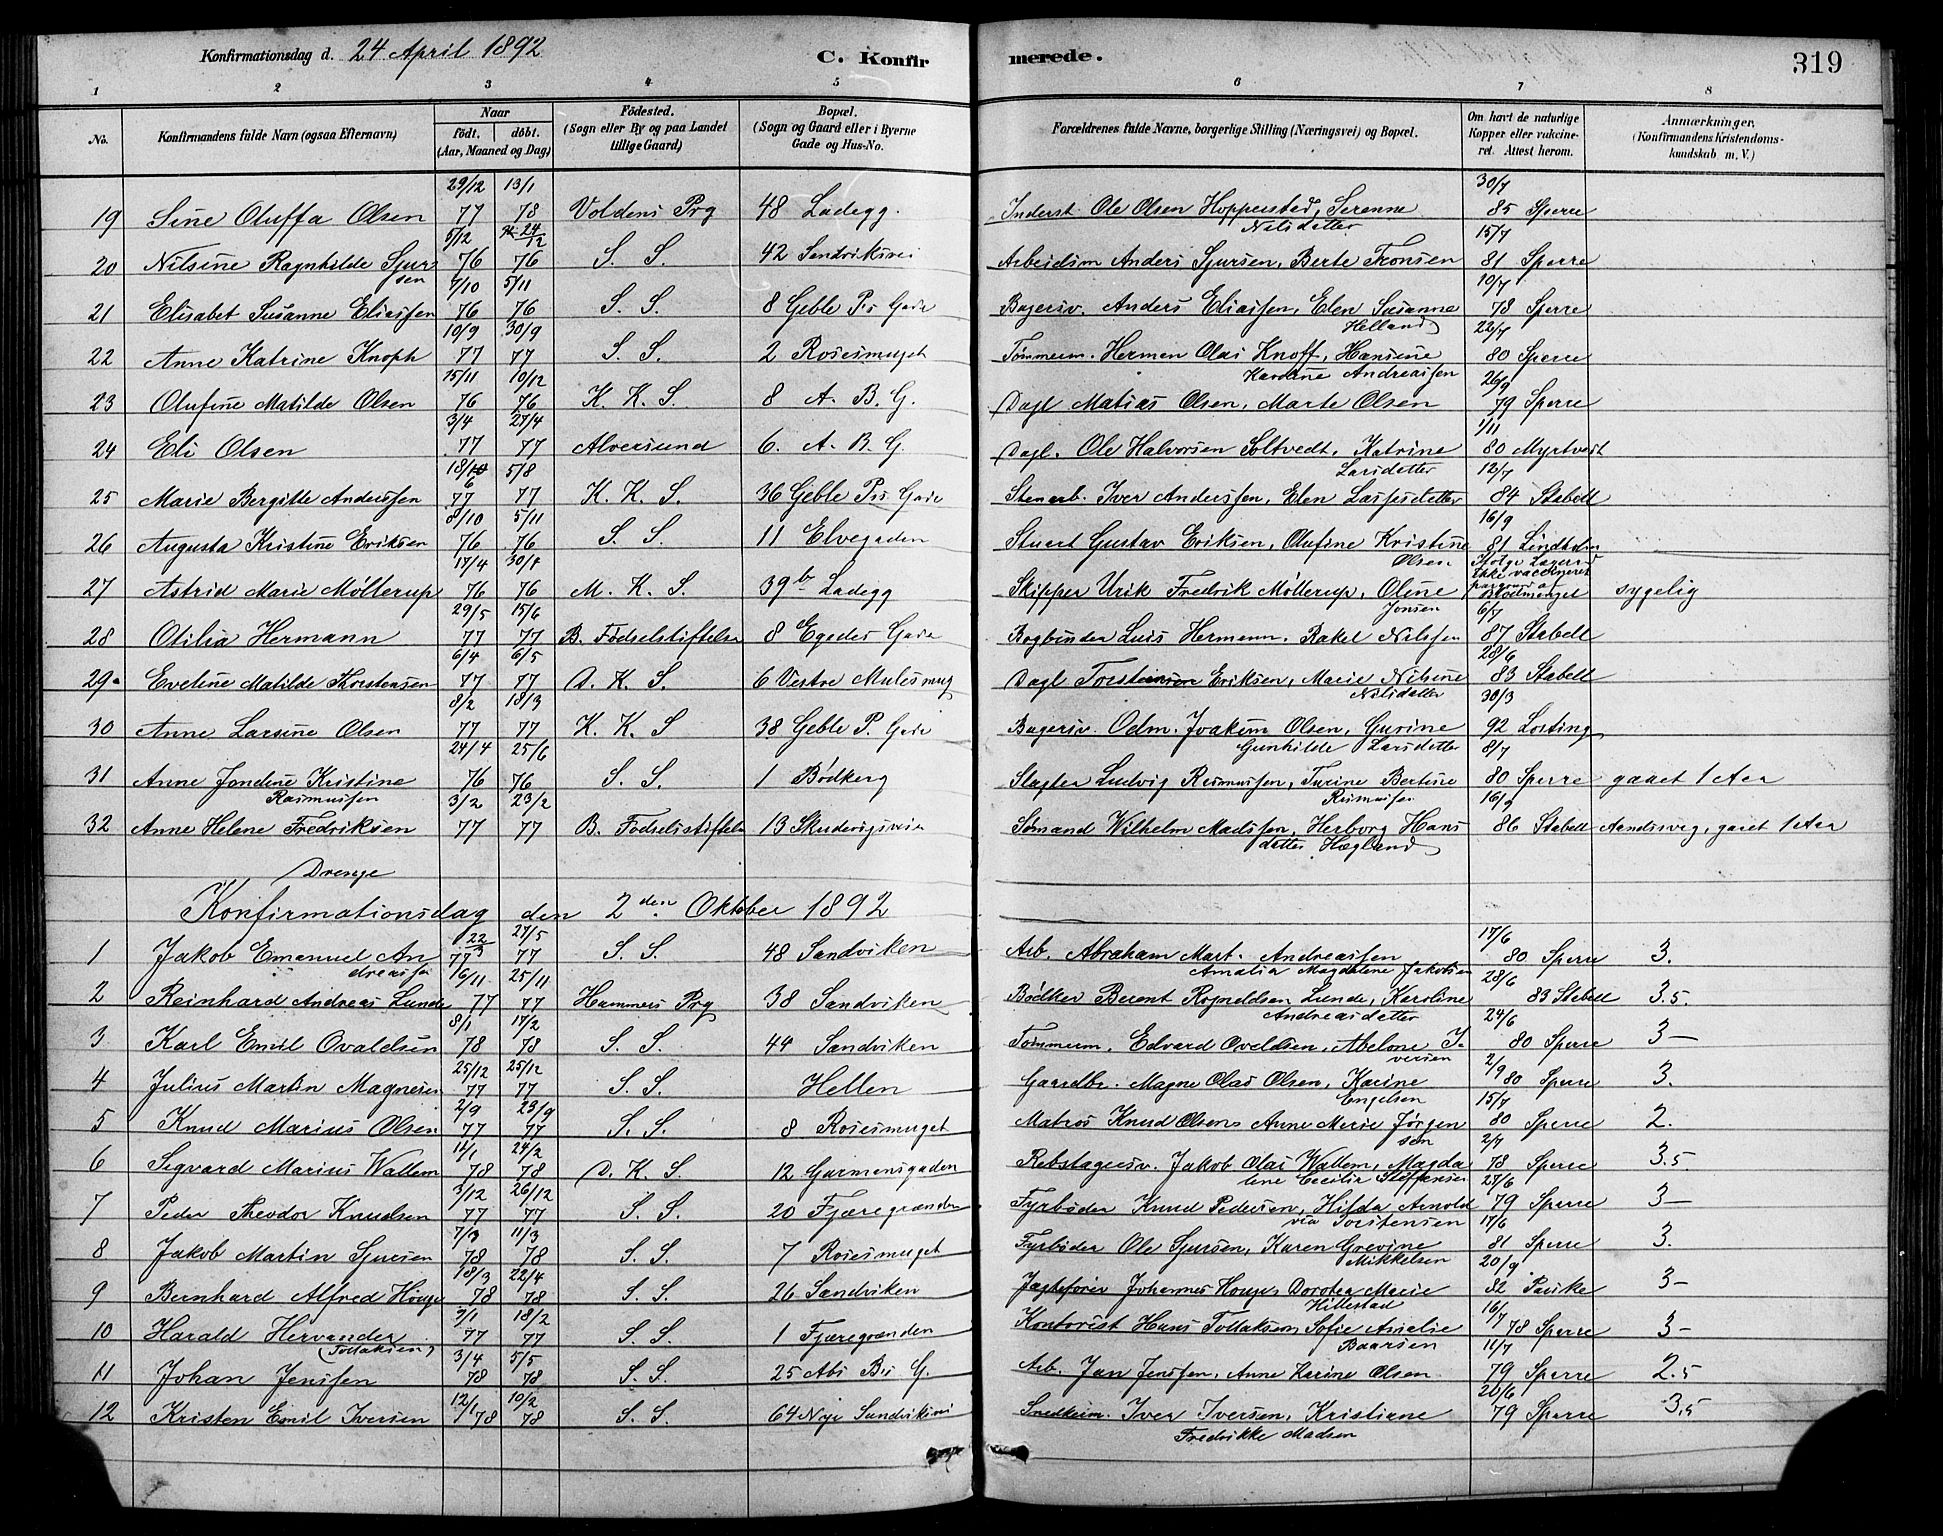 Konfirmationsdag d. 24 April 1892 C. Konfirmerede. 319
1 2 3 4 5 6 7 8
No. Konfirmandens fulde Navn (ogsaa Efternavn) Naar født. døbt. (Aar, Maaned og Dag) Fødested. (Sogn eller By og paa Landet tillige Gaard) Bopæl. (Sogn og Gaard eller i Byerne Gade og Hus-No. Forældrenes fulde Navne, borgerlige Stilling (Næringsvei) og Bopæl. Om havt de naturlige Kopper eller vakcineret. Attest herom. Anmærkninger, (Konfirmandens Kristendomskundskab m. V.)
29/12 13/1 30/7
19 Sine Oluffa Olsen 77 78 Voldens Prg 48 Ladegg. Inderst Ole Olsen Hopperstad, Serenne Nilsdetter 85 Sperre
5/12 24/12 15/7
20 Nilsine Ragnhilde Sjursen 76 76 S. S. 42 Sandviksvei Arbeidsm Anders Sjursen, Berte Tronsen 81 Sperre
7/10 5/11 10/7
21 Elisabet Susanne Eliassen 76 76 S. S. 8 Geble Ps Gade Bagersv. Anders Eliassen, Elen Susanne Helland 78 Sperre
10/9 30/9 22/7
22 Anne Katrine Knoph 77 77 S. S. 2 Rosesmuget Tømmerm. Herman Olai Knoff, Hansine Karoline Andreassen 80 Sperre
15/11 10/12 26/9
23 Olufine Matilde Olsen 76 76 K. K. S. 8 A. B. G. Dagl Matias Olsen, Marte Olsen 79 Sperre
3/4 27/4 1/11
24 Eli Olsen 77 77 Alversund 6. A. B. G. Dagl. Ole Halvorsen Soltvedt, Katrine Larsdetter 80 Myrtvedt
18/6 5/8 12/7
25 Marie Bergitte Anderssen 77 77 K. K. S. 36 Geble Ps Gade Stenarb. Iver Anderssen, Elen Lassesdetter 84 Stabell
8/10 5/11 16/9
26 Augusta Kristine Eriksen 76 76 S. S. 11 Elvegaden Stuert Gustav Eriksen, Olufine Kristine Olsen 81 Lindholm
17/4 30/4 Ifølge Læge Ikke vaccineret
27 Astrid Marie Møllerup 76 76 M. K. S. 39b Ladegg Skipper Urik Fredrik Møllerup, Oline Jonsen Blodmangel sygelig
29/5 15/6 6/7
28 Otilia Hermann 77 77 B. Fødselstiftelse 8 Egedes Gade Bogbinder Luis Hermann, Rakel Nilssen 87 Stabell
6/4 6/5 28/6
29 Eveline Matilde Thorstensen 77 77 D. K. S. 6 Vestre Mulesmug Dagl Torstein Eriksen, Marie Nilsine Nilsdetter 83 Stabell
8/2 18/3 30/3
30 Anne Larsine Olsen 77 77 K. K. S 38 Geble P. Gade Bagersv. Odm. Joakim Olsen, Gurine Gunhilde Larsdetter 92 Losting
24/4 25/6 8/7
31 Anne Jondine Kristine Rasmussen 76 76 S. S. 1 Bødkerg Slagter Ludvig Rasmussen, Turine Bertine Rasmussen 80 Sperre gaaet 1 Aar
3/2 23/2 16/9
32 Anne Helene Fredriksen 77 77 B. Fødselsstiftelse 13 Skudevigsveien Sømand Wilhelm Madssen, Herborg Hansdatter Hægland 86 Stabell Aandssvag, gaaet 1 Aar
Drenge
Konfirmationsdag den 2den Oktober 1892
22/3 27/5 17/6
1 Jakob Emanuel Andreassen 77 77 S. S. 48 Sandviken Arb. Abraham Mart. Andreassen Amalia Magdalene Jakobsen 80 Sperre 3.
6/11 25/11 28/6
2 Reinhard Andreas Lunde 77 77 Hammers Prg 38 Sandviken Bødker Berent Rognaldsen Lunde, Karoline Andreasdetter 83 Stabell 3.5.
8/1 17/2 24/6
3 Karl Emil Ovaldsen 78 78 S. S. 44 Sandviken Tømmerm. Edvard Ovaldsen, Abelone Iversen 80 Sperre 3—
25/12 25/12 2/9
4 Julius Martin Magnesen 77 77 S. S. Hellen Gaardbr. Magne Olas Olsen, Karine Engelsen 80 Sperre 3.
2/9 23/9 15/7
5 Knud Marius Olsen 77 77 S. S. 8 Rosesmuget Matros Knud Olsen, Anne Marie Jørgensen 80 Sperre 2.
14/1 24/2 2/7
6 Sigvard Marius Wallem 78 78 D. K. S. 12 Garmansgaden Rebslagersv. Jakob Olai Wallem, Magdalene Cecilia Steffensen 78 Sperre 3.5
3/12 26/12 27/6
7 Peder Theodor Knudsen 77 77 S. S. 20 Fjæregranden Fyrbøder Knud Pedersen, Hilda Arnoldvia Torstensen 79 Sperre 3—
7/3 11/3 17/6
8 Jakob Martin Sjursen 78 78 S. S. 7 Rosesmuget Fyrbøder Ole Sjursen, Karen Grevine Mikkelsen 81 Sperre 3.
18/3 22/4 20/9
9 Bernhard Alfred Houge 78 78 S. S. 26 Sandviken Jagtefører Johannes Houge, Dorotea Marie Hillestad 82 Pavike 3—
3/1 18/2 16/7
10 Harald Hervander (Tollaksen) 77 77 S. S. 1 Fjæregranden Kontorist Hans Tollaksen, Sofie Amalie Baarsen 78 Sperre 3—
3/4 5/5 11/7
11 Johan Jenssen 78 78 S. S. 25 Abs Bs G. Arb. Jan Jenssen, Anne Karine Olsen 79 Sperre 2.5
12/1 10/2 20/6
12 Kristen Emil Iversen 78 78 S. S. 64 Nye Sandviksvei Snedkerm. Iver Iversen, Kristiane Fredrikke Madsen 79 Sperre 3.5